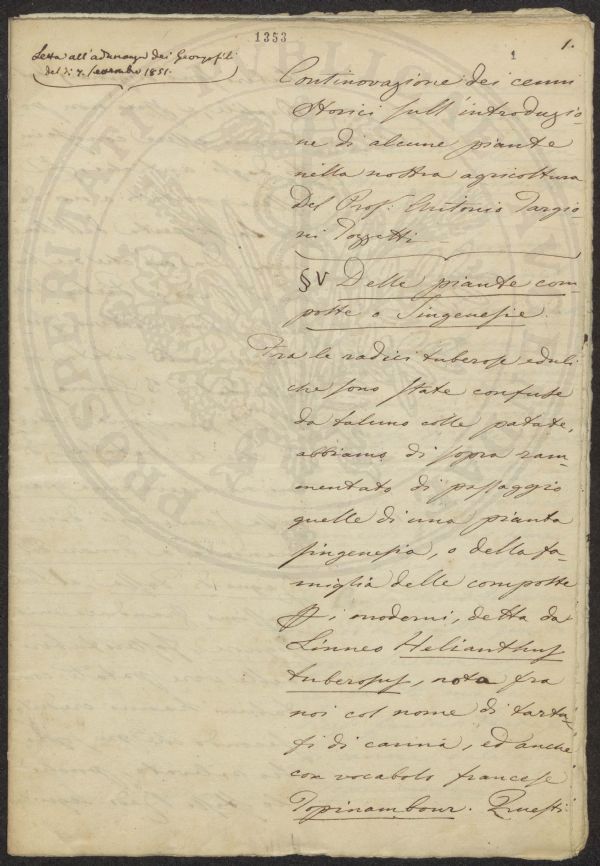 1353
1.
1
Letta all'adunanza dei Georgofili
del dì 7. Settembre 1851.
Continovazione dei cenni
storici sull'introduzio-
ne di alcune piante
nella nostra agricoltura
Del Prof: Antonio Targio
ni Tozzetti
§V Delle piante com-
poste o Singenesie.
Fra le radici tuberose eduli
che sono state confuse
da taluno colle patate,
abbiamo di sopra ram-
mentato di passaggio
quelle di una pianta
singenesia, o della fa-
miglia delle composte
i moderni, detta da
Linneo Helianthus
tuberosus, nota fra
noi col nome di tartu-
fi di canna, ed anche
con vocabolo francese
Topinambour. Questi
PROSPERITATI PUBLICAE